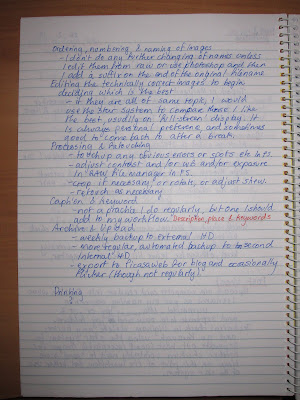 Ordering, numbering, & naming of images
- I don't do any further changing of names unless
I edit them from raw or use photoshop and then
I add a suffix on the end of the original filename
Editing the technically correct images to begin
deciding which is the best
- if they are all of same topic, I would
use the star system to compare those I like
the best, usually on full-screen display. It
is always personal preference, and sometimes
good to come back to after a break.
Processing & Retouching
- touch up any obvious errors or spots etc in PS.
- adjust contrast and/or WB and/or exposure
in RAW file manager in PS.
- crop if necessary, or rotate, or adjust skew.
- retouch as necessary
Caption & Keyword
- not a practice I do regularly, but one I should
add to my workflow. Descriptive, place & keywords
Archive & Upload
- weekly backup to external HD
- more regular, automated backup to second
internal HD.
- export to Picasaweb for blog and occasionally
Flickr (though not regularly).
Printing